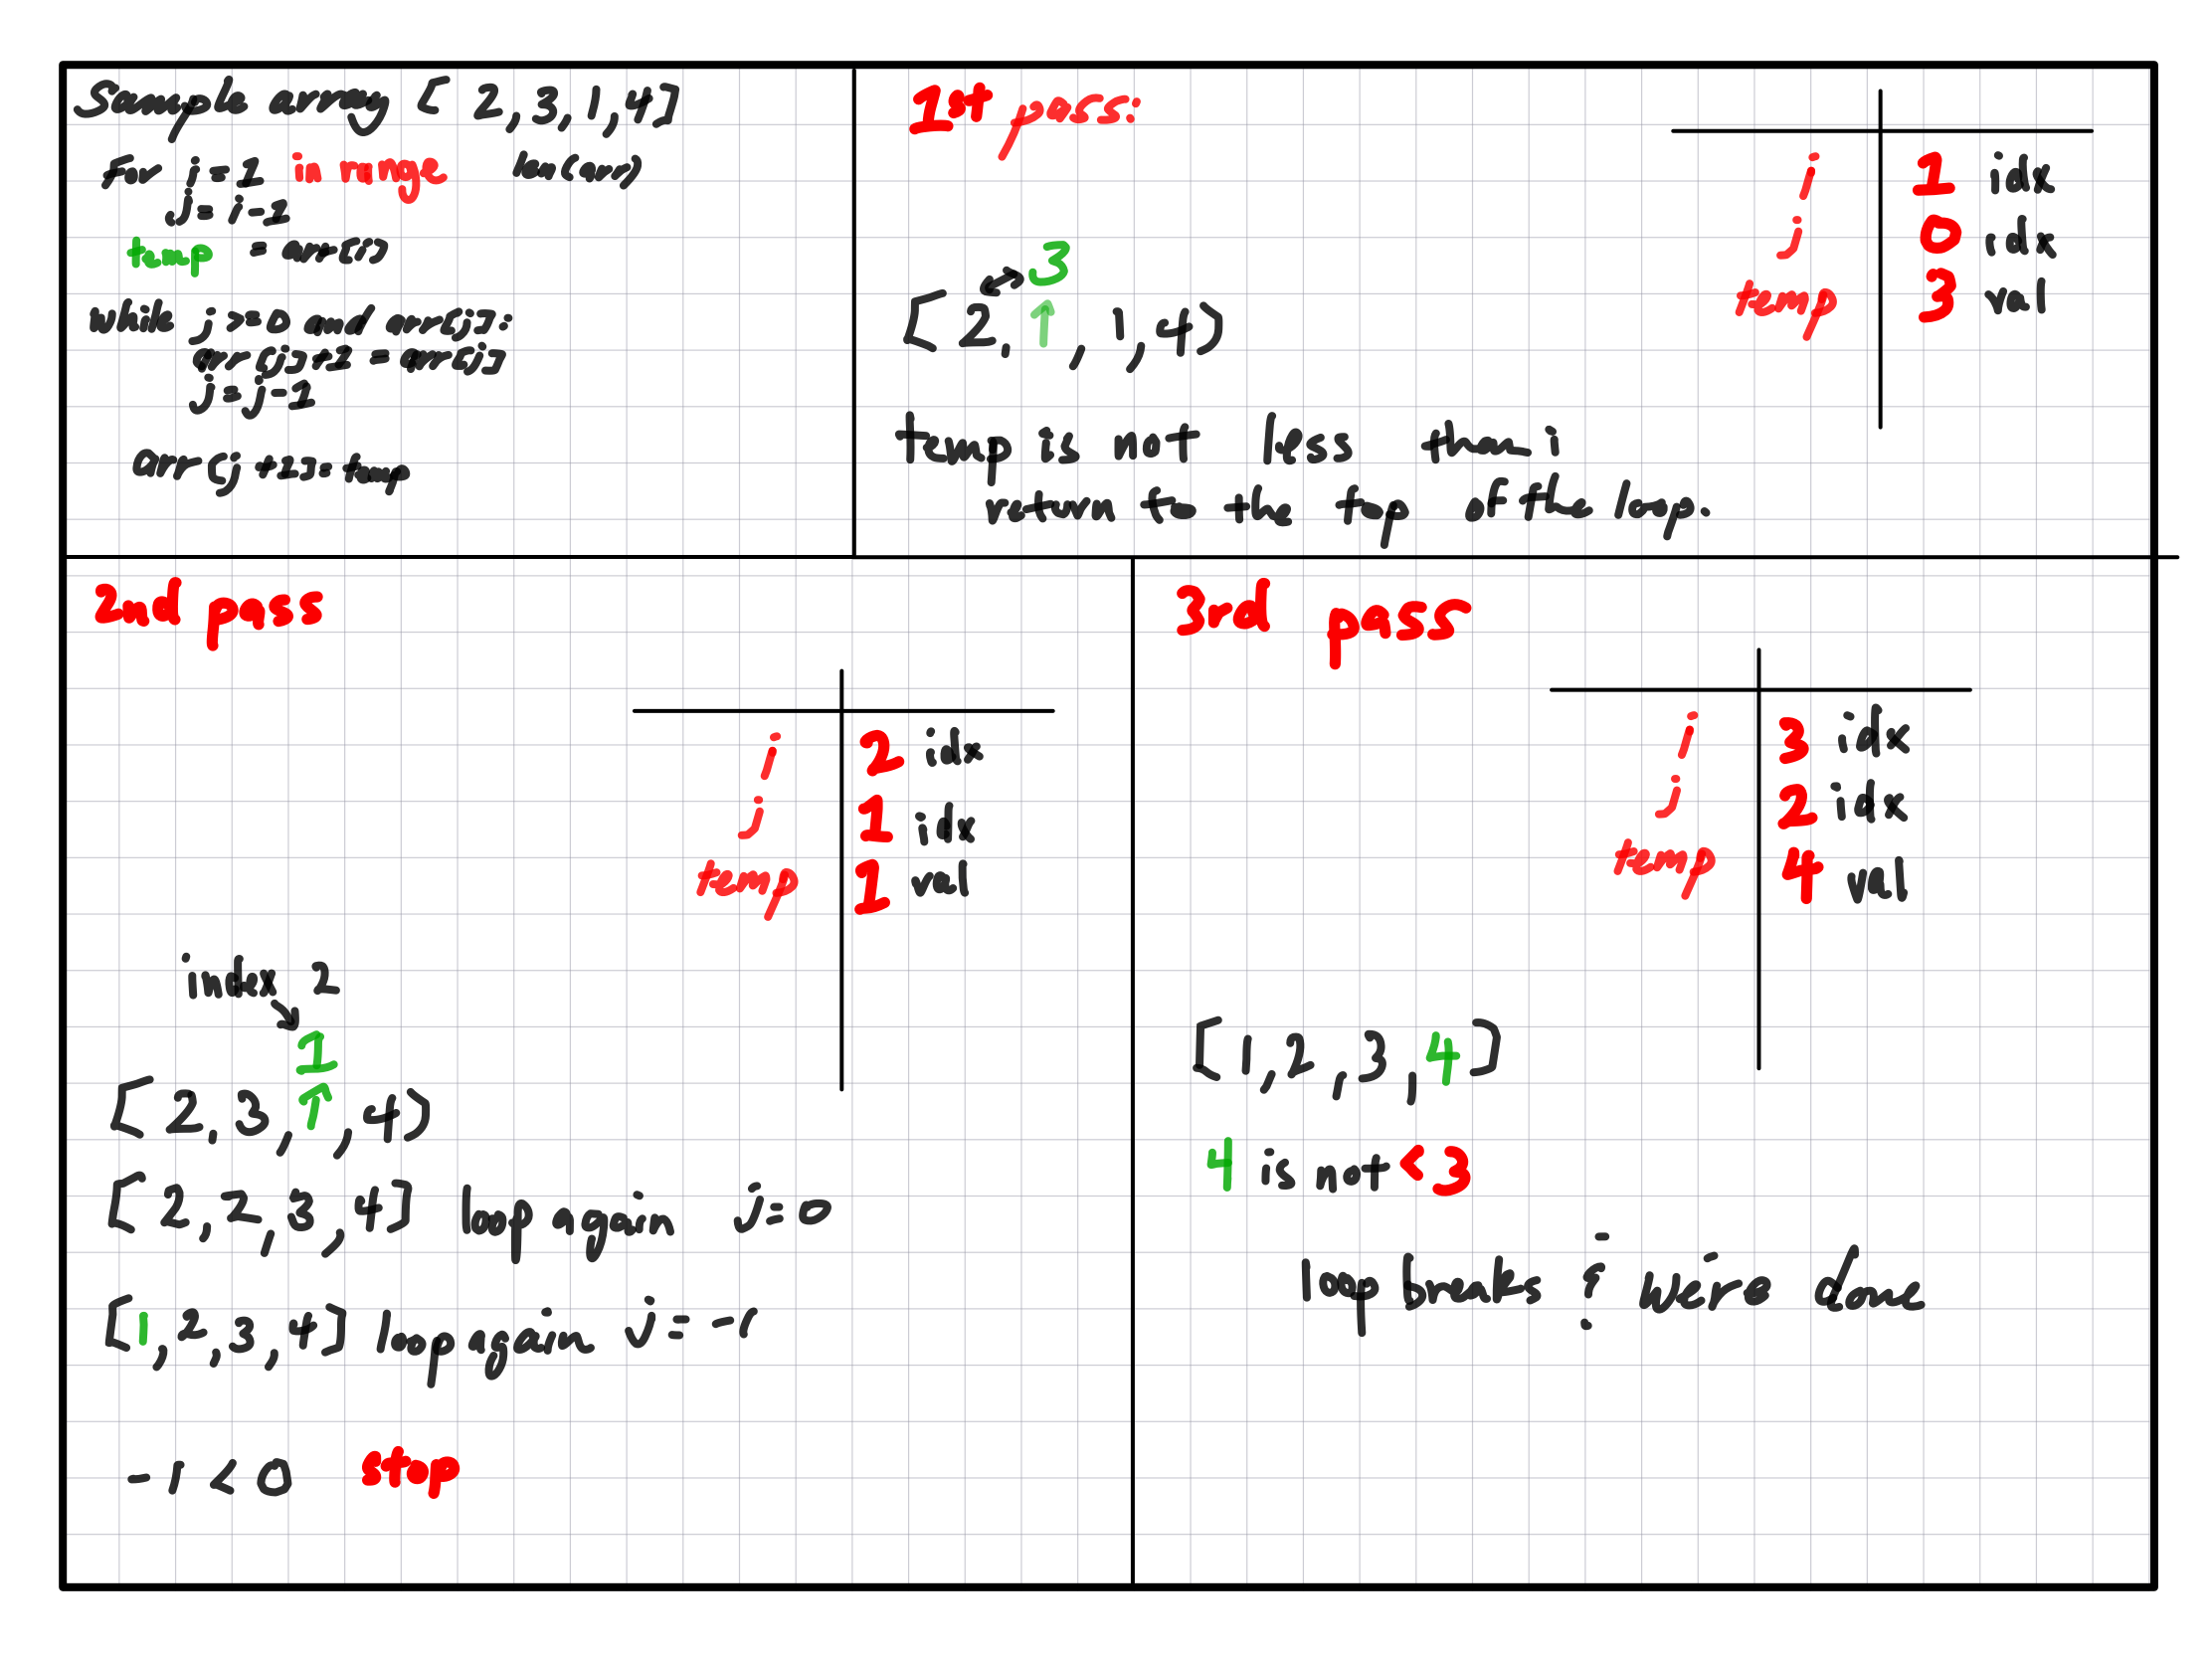 Sample array [2,3,1,4]
For i=1 in range len(arr)
j=i-1
temp = arr[i]
while j>=0 and arr[j]:
arr[j]+1=arr[j]
j=j-1
arr[j+1]=temp
1st pass:
i 1 idx
j 0 idx
temp 3 val
3
[2, ↑, 1, 4)
temp is not less than i
return to the top of the loop.
2nd pass
i 2 idx
j 1 idx
temp 1 val
index 2
1
[2,3,↑,4)
[2,2,3,4] loop again j=0
[1,2,3,4] loop again j=-1
-1<0 stop
3rd pass
i 3 idx
j 2 idx
temp 4 val
[1,2,3,4]
4 is not <3
loop breaks & we're done